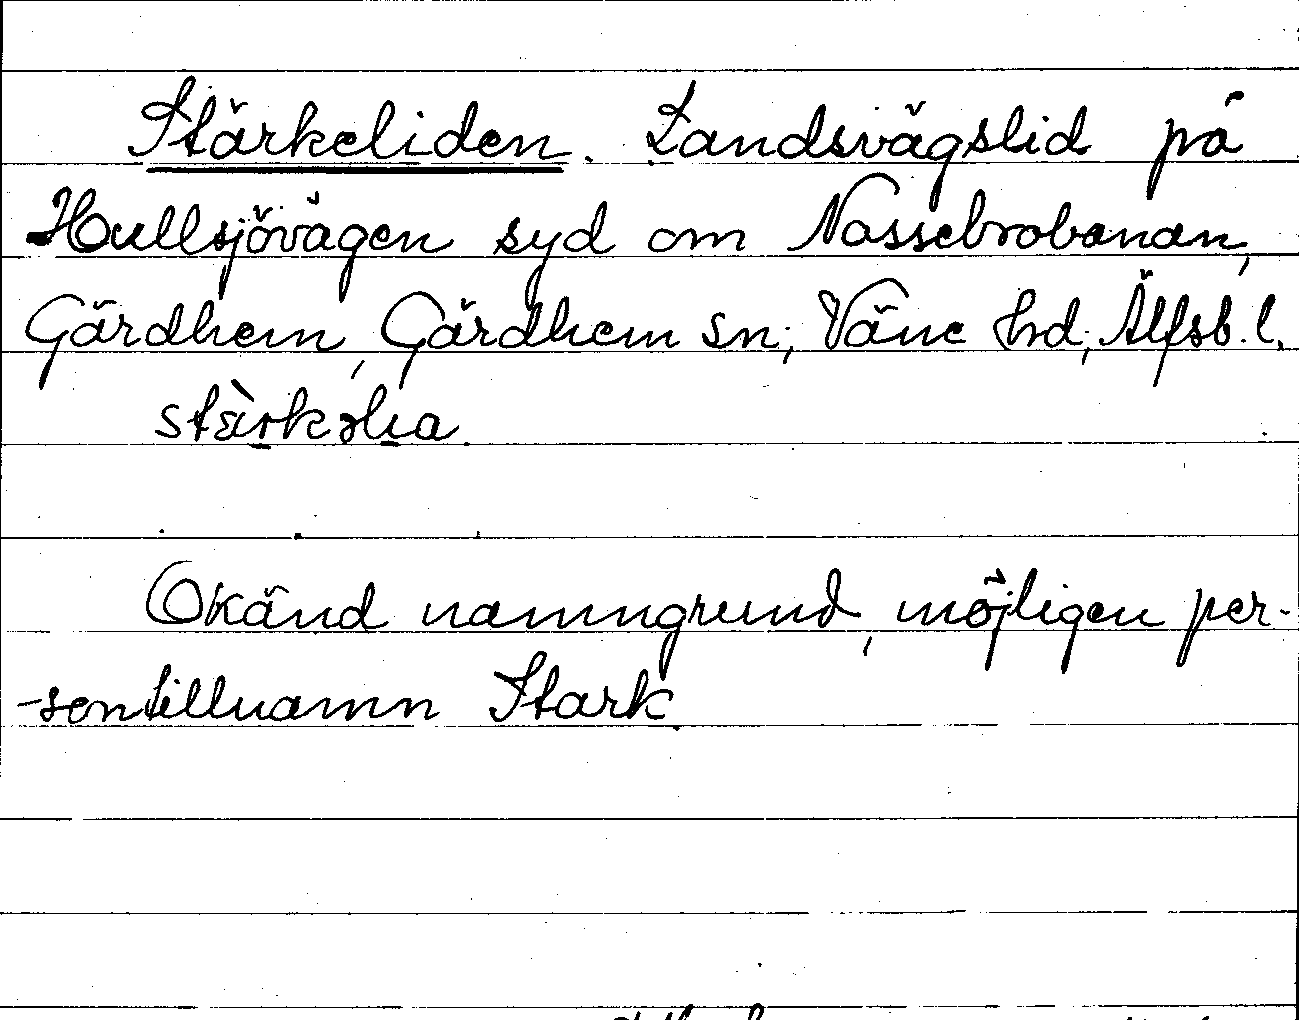 Stärkeliden. Landsvägslid på
Hullsjövägen syd om Nossebrobanan,
Gärdhem, Gärdhem sn; Väne hd; Älfsb. l.
stàrkəlia.
Okänd namngrund, möjligen per-
-sontillnamn Stark.